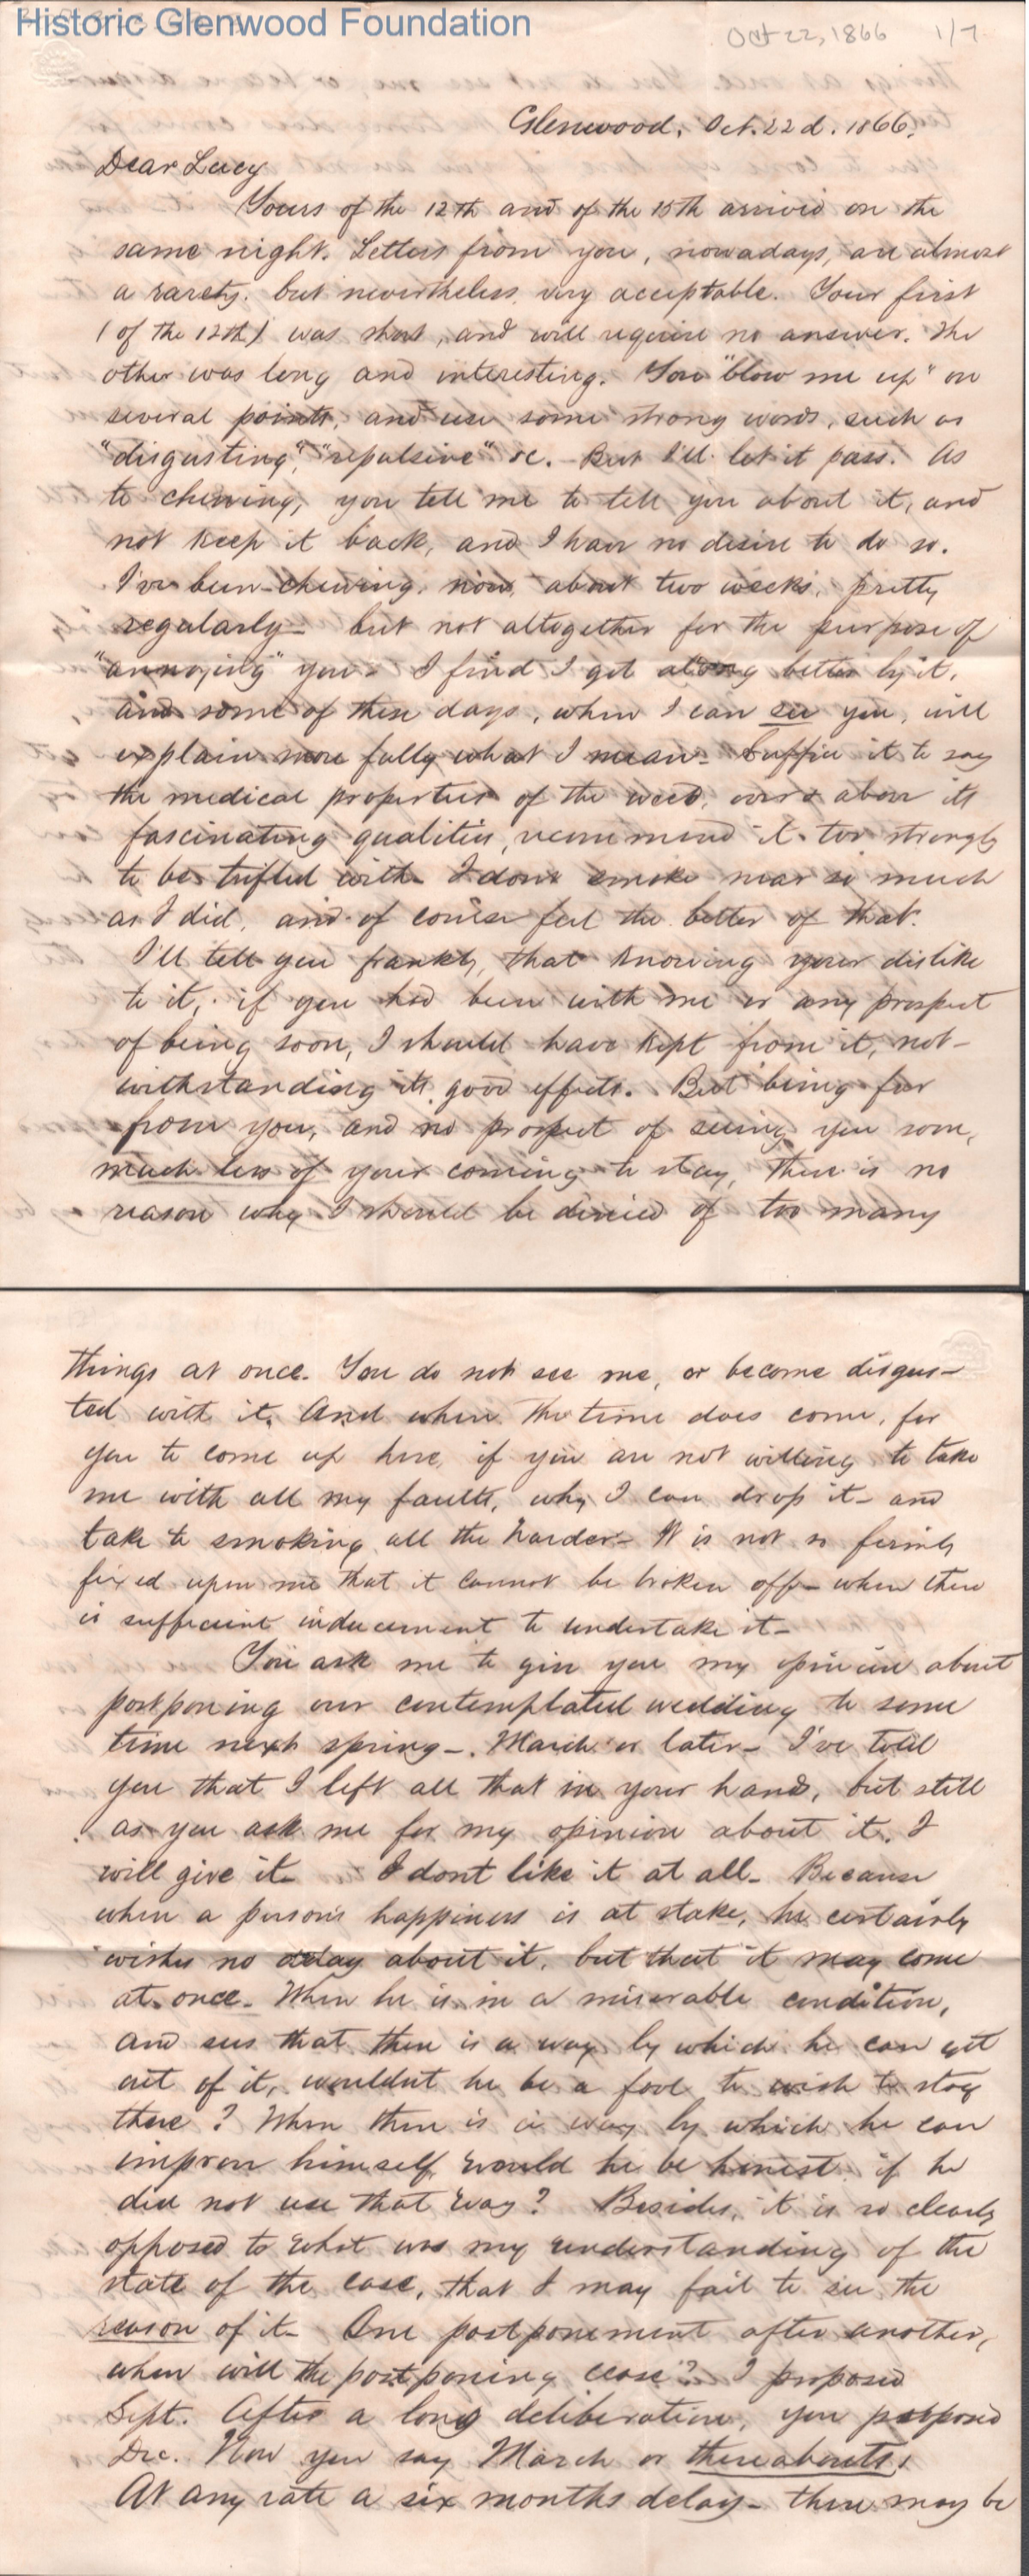 Historic Glenwood Foundation
Oct 22, 1866 1/7
Glenwood, Oct. 22d. 1866.
Dear Lucy
Yours of the 12th and of the 15th arrived on the
same night. Letters from you, nowadays, are almost
a rarety. but nevertheless very acceptable. Your first
(of the 12th) was short, and will require no answer. The
other was long and interesting. You "blow me up" on
several points, and use some strong words, such as
"disgusting", "repulsive" &c. - But I'll let it pass. As
to chewing, you tell me to tell you about it, and
not keep it back, and I have no desire to do so.
I've been chewing, now, about two weeks, pretty
regularly - but not altogether for the purpose of
"annoying" you. I find I get along better by it,
and some of these days, when I can see you, will
explain more fully what I mean - Suffice it to say
the medical properties of the weed, over & above its
fascinating qualities, recommend it too strongly
to be trifled with - I dont smoke near so much
as I did, and of course feel the better of that.
I'll tell you frankly, that knowing your dislike
to it, if you had been with me or any prospect
of being soon, I should have kept from it, not-
withstanding its good effects. But being far
from you, and no prospect of seeing you soon,
much less of your coming to stay, there is no
reason why I should be denied of too many
things at once. You do not see me, or become disgus-
ted with it. And when the time does come, for
you to come up here, if you are not willing to take
me with all my faults, why I can drop it - and
take to smoking all the harder - It is not so firmly
fixed upon me that it cannot be broken off - when there
is sufficient inducement to undertake it -
You ask me to give you my opinion about
postponing our contemplated wedding to some
time next spring -. March or later - I've told
you that I left all that in your hands, but still
as you ask me for my opinion about it, I
will give it - I dont like it at all - Because
when a person's happiness is at stake, he certainly
wishes no delay about it, but that it may come
at once - When he is in a miserable condition,
and sees that there is a way by which he can get
out of it, wouldnt he be a fool to wish to stay
there? When there is a way by which he can
improve himself, would he be honest if he
did not use that way? Besides, it is so clearly
opposed to what was my understanding of the
state of the case, that I may fail to see the
reason of it - One postponement after another,
when will the postponing cease? I proposed
Sept. After a long deliberation, you postponed
Dec. Now you say March or thereabouts!
At any rate a six months delay - there may be